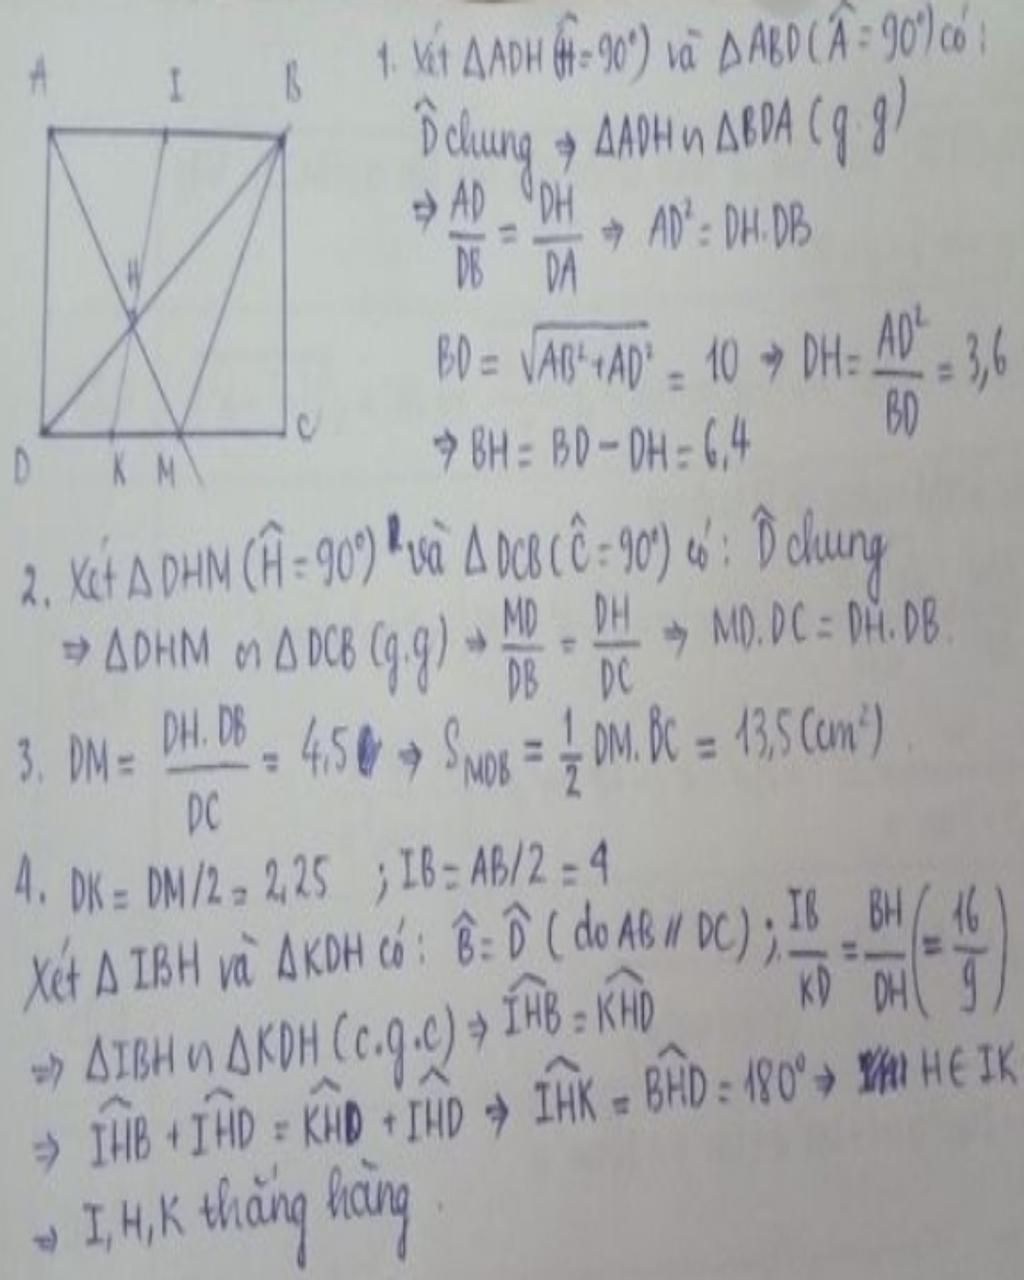 A I B
H
D K M C
1. Xét ΔADH (Ĥ = 90°) và ΔABD (Â = 90°) có:
D̂ chung ⇒ ΔADH ∽ ΔBDA (g.g)
⇒ AD/DB = DH/DA ⇒ AD² = DH.DB
BD = √(AB² + AD²) = 10 ⇒ DH = AD²/BD = 3,6
⇒ BH = BD − DH = 6,4
2. Xét ΔDHM (Ĥ = 90°) và ΔDCB (Ĉ = 90°) có: D̂ chung
⇒ ΔDHM ∽ ΔDCB (g.g) ⇒ MD/DB = DH/DC ⇒ MD.DC = DH.DB.
3. DM = DH.DB/DC = 4,5 ⇒ S_MDB = 1/2 DM.BC = 13,5 (cm²).
4. DK = DM/2 = 2,25 ; IB = AB/2 = 4
Xét ΔIBH và ΔKDH có: B̂ = D̂ (do AB // DC) ; IB/KD = BH/DH (= 16/9)
⇒ ΔIBH ∽ ΔKDH (c.g.c) ⇒ IHB^ = KHD^
⇒ IHB^ + IHD^ = KHD^ + IHD^ ⇒ IHK^ = BHD^ = 180° ⇒ H ∈ IK
⇒ I, H, K thẳng hàng.